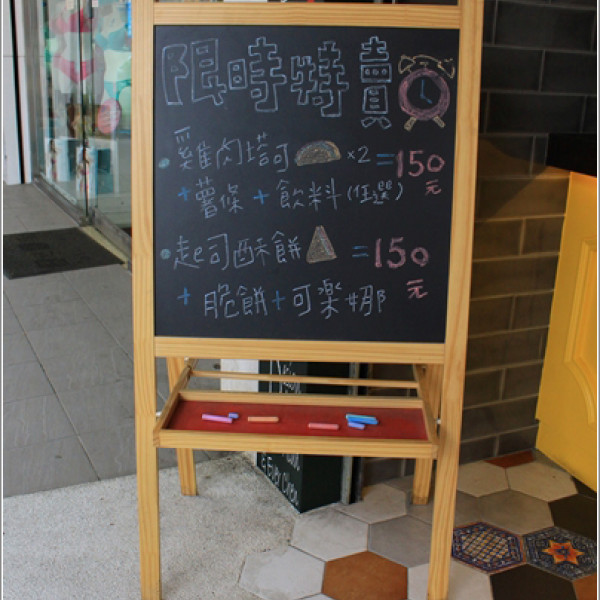 限時特賣
雞肉塔可 ×2 =150元
+薯條 + 飲料(任選)
起司酥餅 =150元
+脆餅+可樂娜